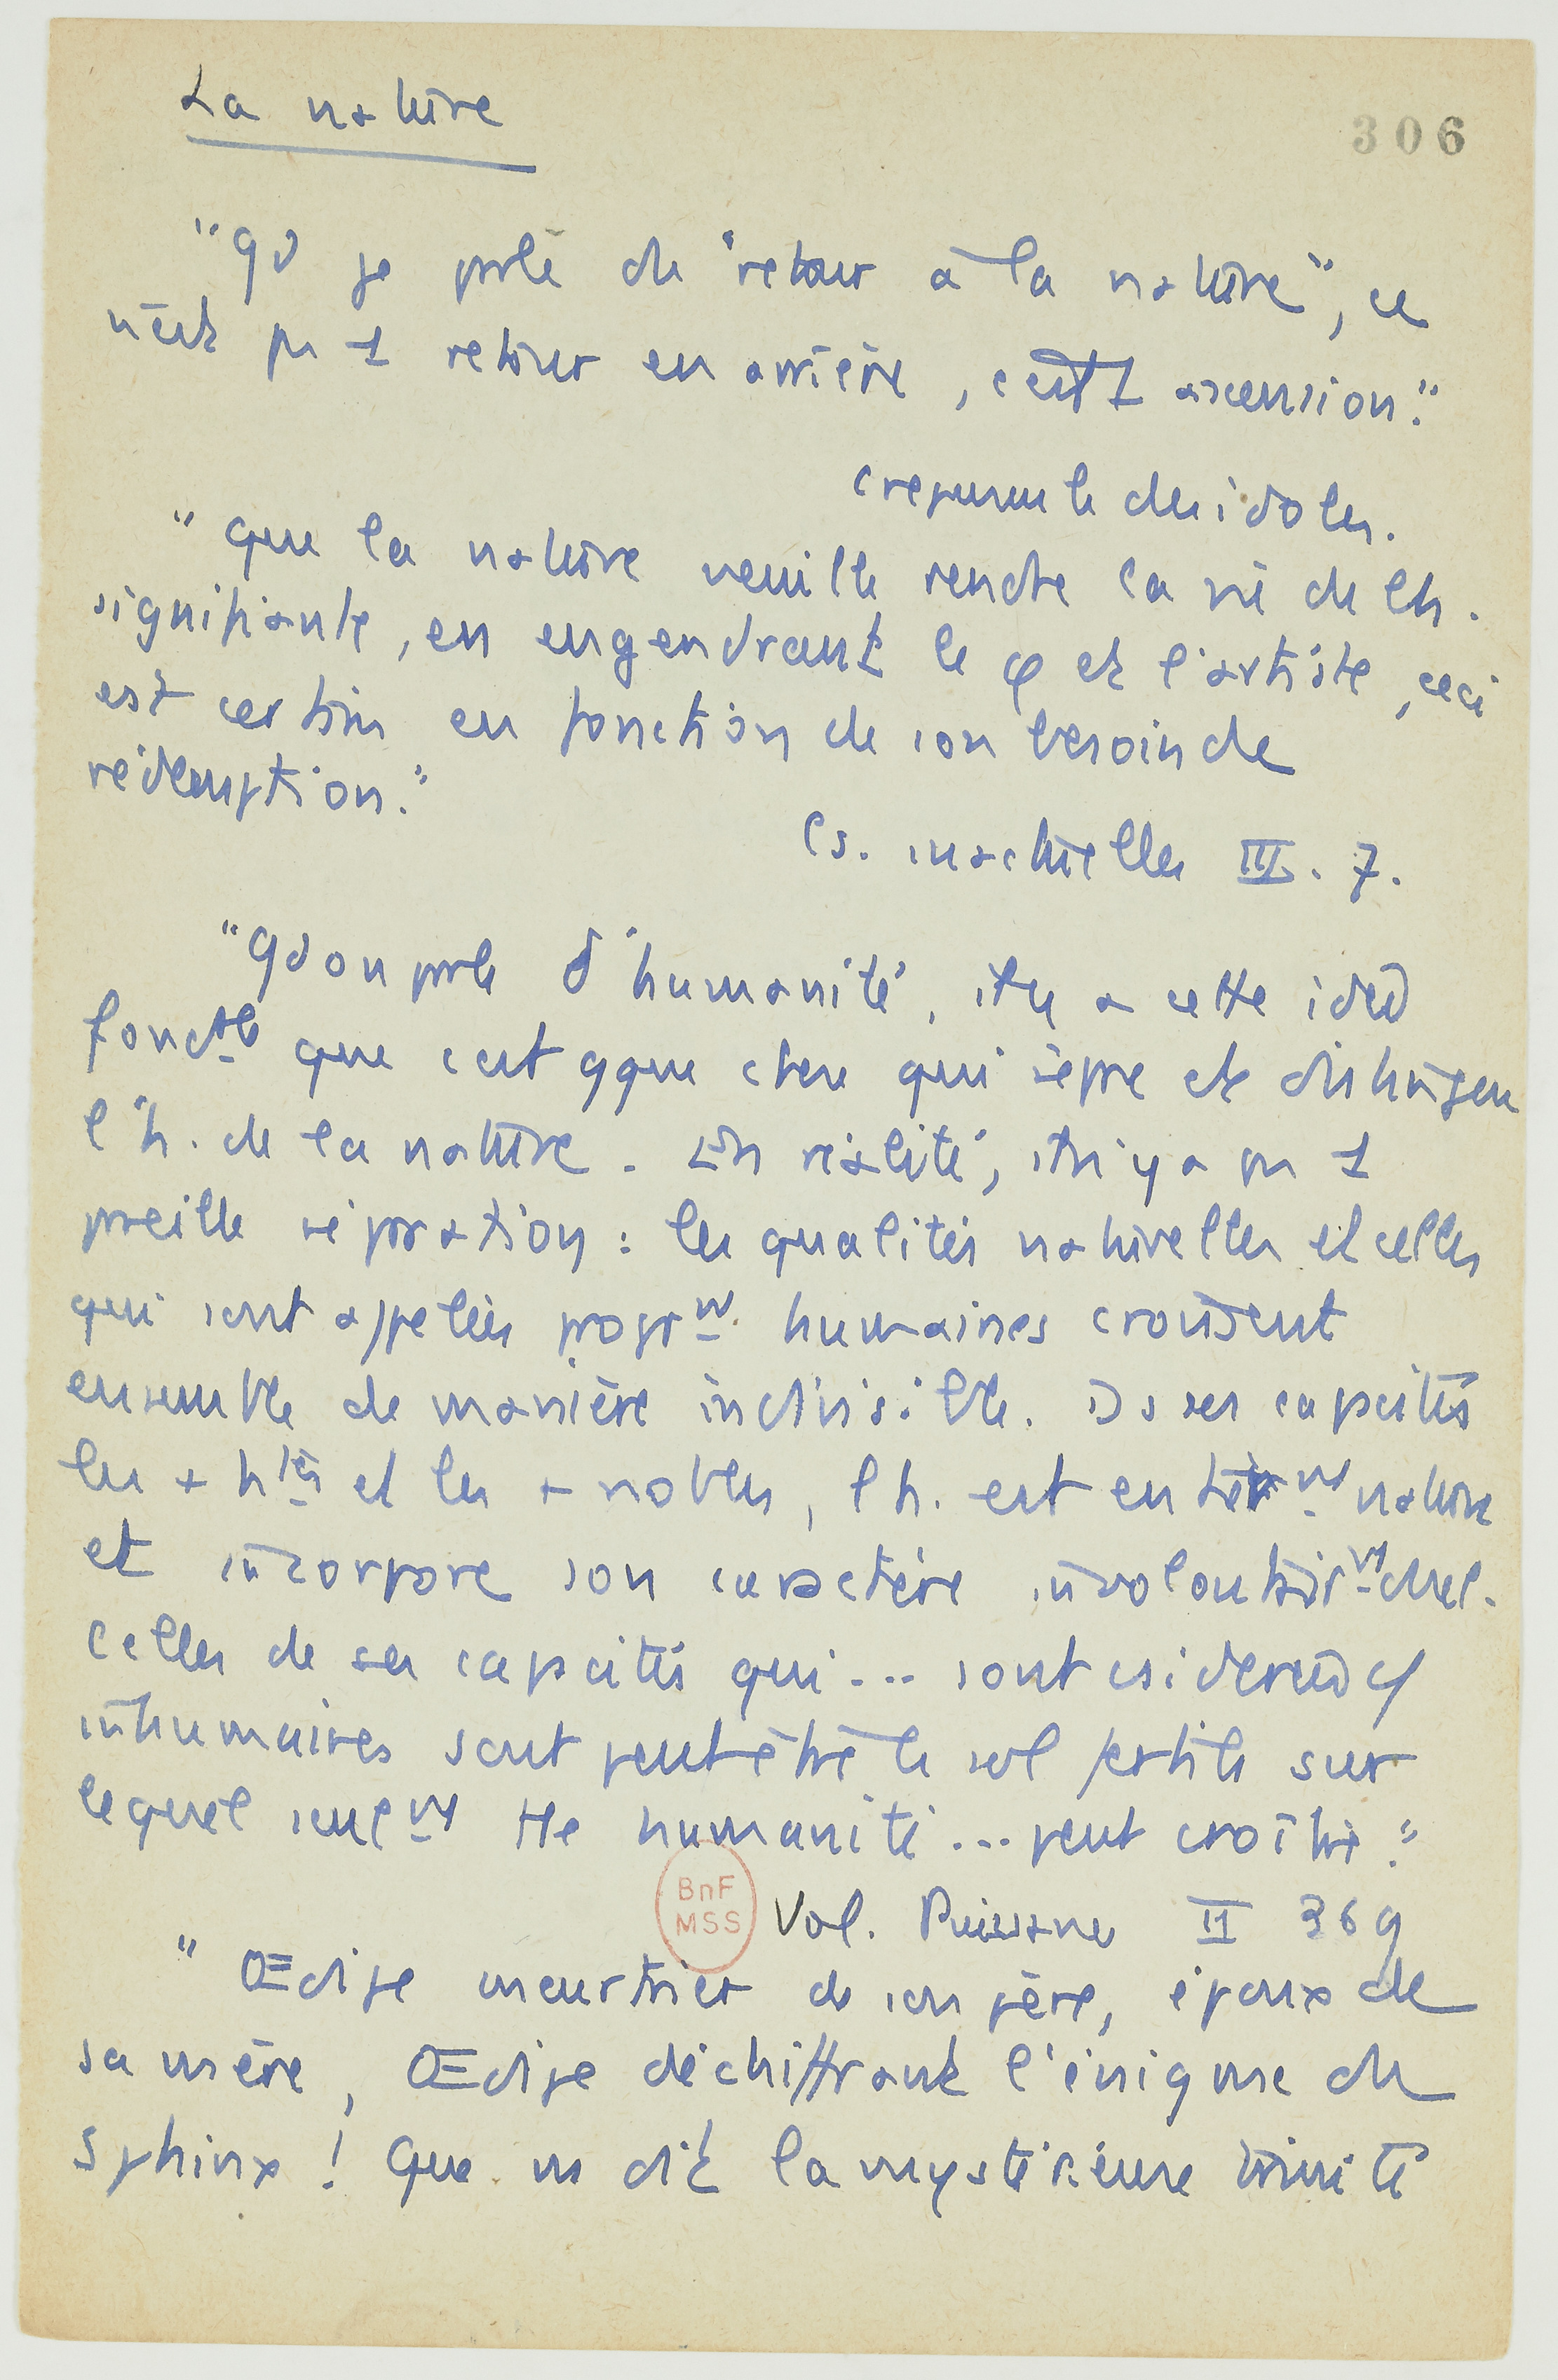 La nature
306
"Qd je parle de "retour à la nature", ce
n'est pas 1 retour en arrière, c'est 1 ascension."
Crepuscule des idoles.
"Que la nature veuille rendre la vie de l'h.
signifiante, en engendrant le φ et l'artiste, ceci
est certain en fonction de son besoin de
rédemption."
Cs. inactuelles III. 7.
"Qd on parle d'humanité, il y a cette idée
fondtale que c'est qque chose qui sépare et distingue
l'h. de la nature. En réalité, il n'y a pas 1
pareille séparation : les qualités naturelles et celles
qui sont appelées proprmt humaines croissent
ensemble de manière indivisible. Ds ses capacités
les + htes et les + nobles, l'h. est entièrmt nature
et incorpore son caractère involontairmt duel.
Celles de ses capacités qui... sont csidérées c/
inhumaines sont peut-être le sol fertile sur
lequel seulmt tte humanité... peut croître."
BnF
MSS
Vol. Puissance II 369
"Œdipe meurtrier de son père, époux de
sa mère, Œdipe déchiffrant l'énigme du
Sphinx ! Que ns dit la mystérieuse trinité